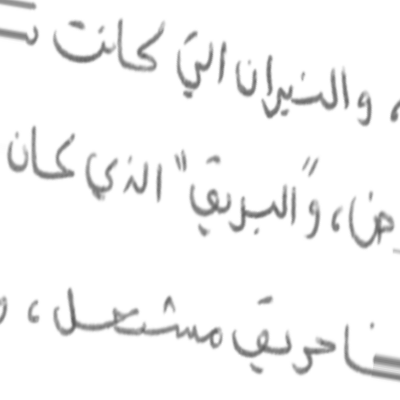 ، والنيران التي كانت
رض، و"البريق" الذي كان
حريق مشتعل،